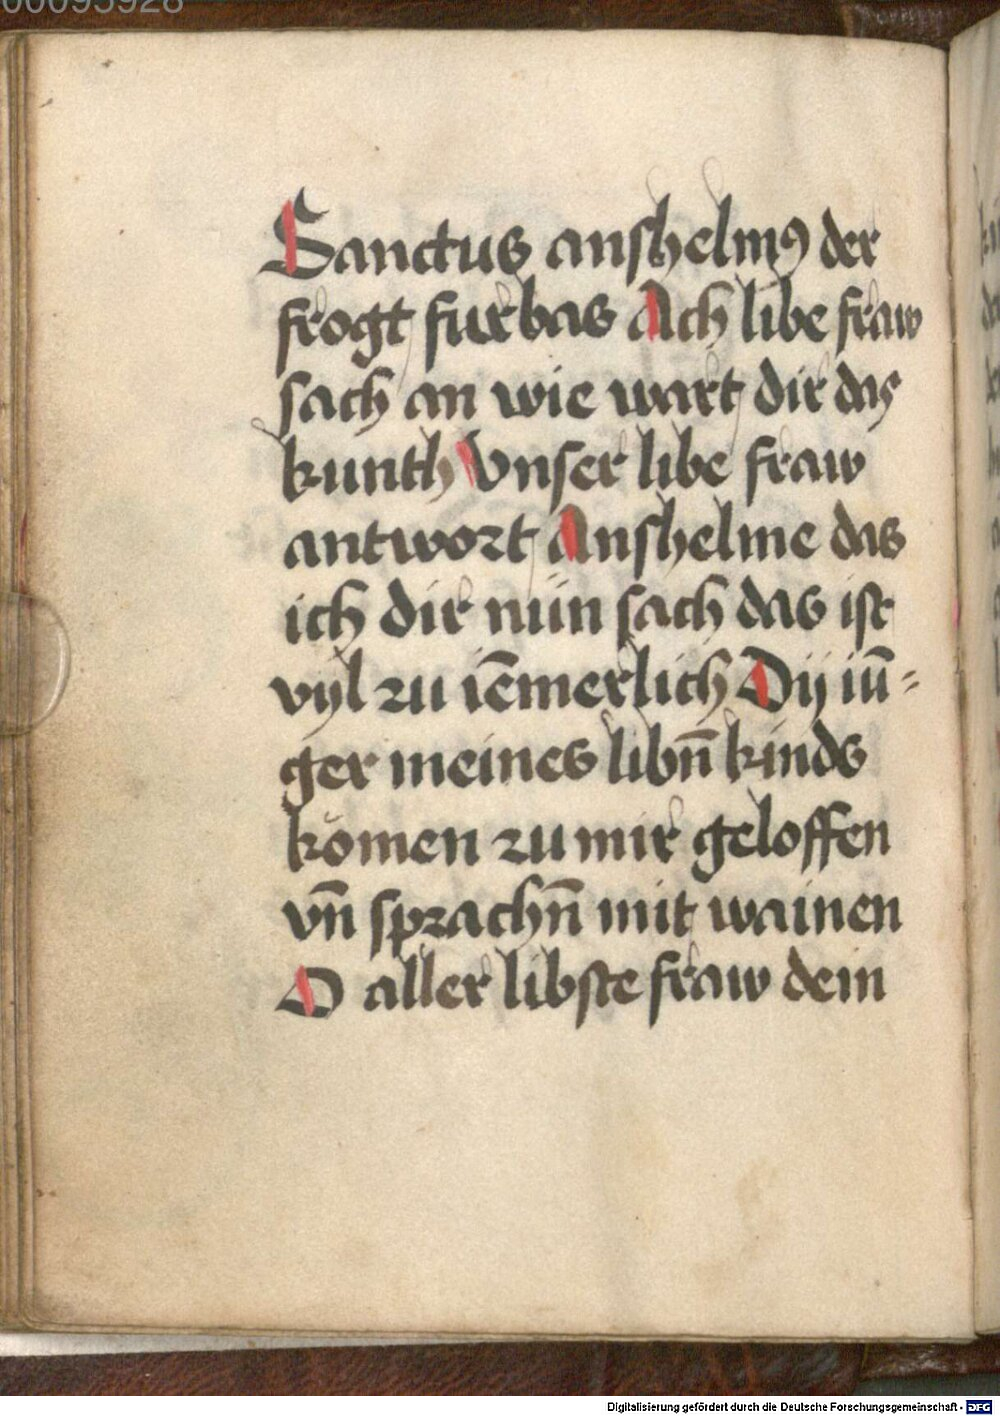 00095928
Sanctus anshelmꝯ der
frogt furbas Ach libe fraw
sach an wie wart dir das
kunth Vnser libe fraw
antwort Anshelme das
ich dir nün sach das ist
vyl zu iēmerlich Dij iū=
ger meines libn̄ kinds
kömen zu mir geloffen
vn̄ sprachn̄ mit wainen
O aller libste fraw dein
Digitalisierung gefördert durch die Deutsche Forschungsgemeinschaft - DFG